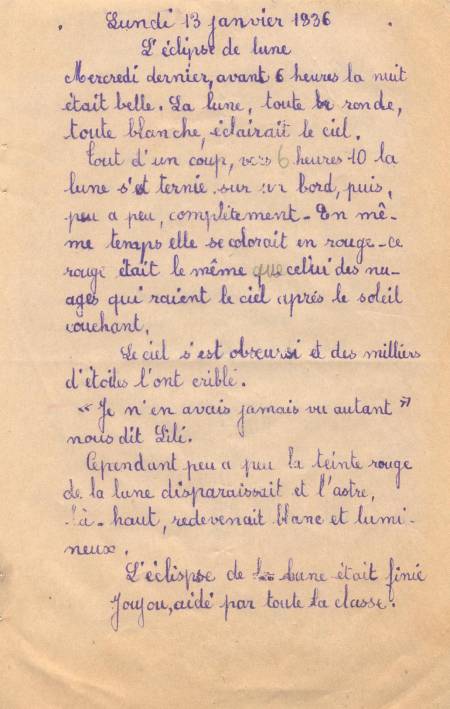 Lundi 13 janvier 1936
L'éclipse de lune
Mercredi dernier, avant 6 heures la nuit
était belle. La lune, toute ronde,
toute blanche, éclairait le ciel.
Tout d'un coup, vers 6 heures 10 la
lune s'est ternie sur un bord, puis,
peu a peu, complètement - En mê-
me temps elle se colorait en rouge - ce
rouge était le même que celui des nu-
ages qui raient le ciel après le soleil
couchant.
Le ciel s'est obscursi et des milliers
d'étoiles l'ont criblé.
"Je n'en avais jamais vu autant"
nous dit Lilé.
Cependant peu a peu la teinte rouge
de la lune disparaissait et l'astre,
là-haut, redevenait blanc et lumi-
neux.
L'éclispse de lune était finie
Joujou, aidé par toute la classe.